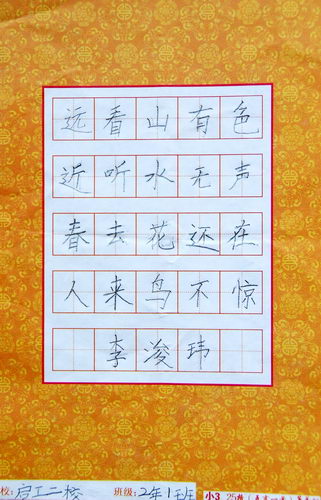 远看山有色
近听水无声
春去花还在
人来鸟不惊
李浚玮
校: 启工二校 班级: 2年1班 小3